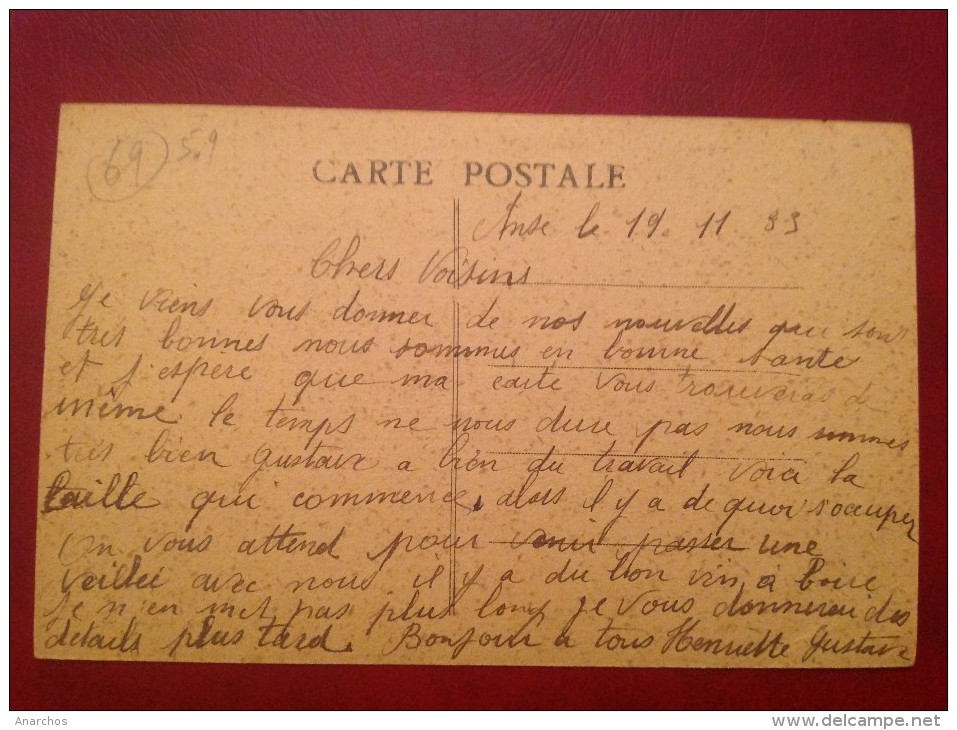 69 5.9
CARTE POSTALE
Anse le 19. 11 33
Chers Voisins
Je viens vous donner de nos nouvelles qui sont
très bonnes nous sommes en bonne santé
et j'espère que ma carte vous trouveras de
même le temps ne nous dure pas nous sommes
très bien Gustave a bien du travail voici la
taille qui commence, alors il y a de quoi s'occuper
On vous attend pour venir passer une
veillée avec nous il y a du bon vin à boire
Je n'en met pas plus long je vous donnerai des
détails plus tard. Bonjour a tous Henriette Gustave
Anarchos
www.delcampe.net